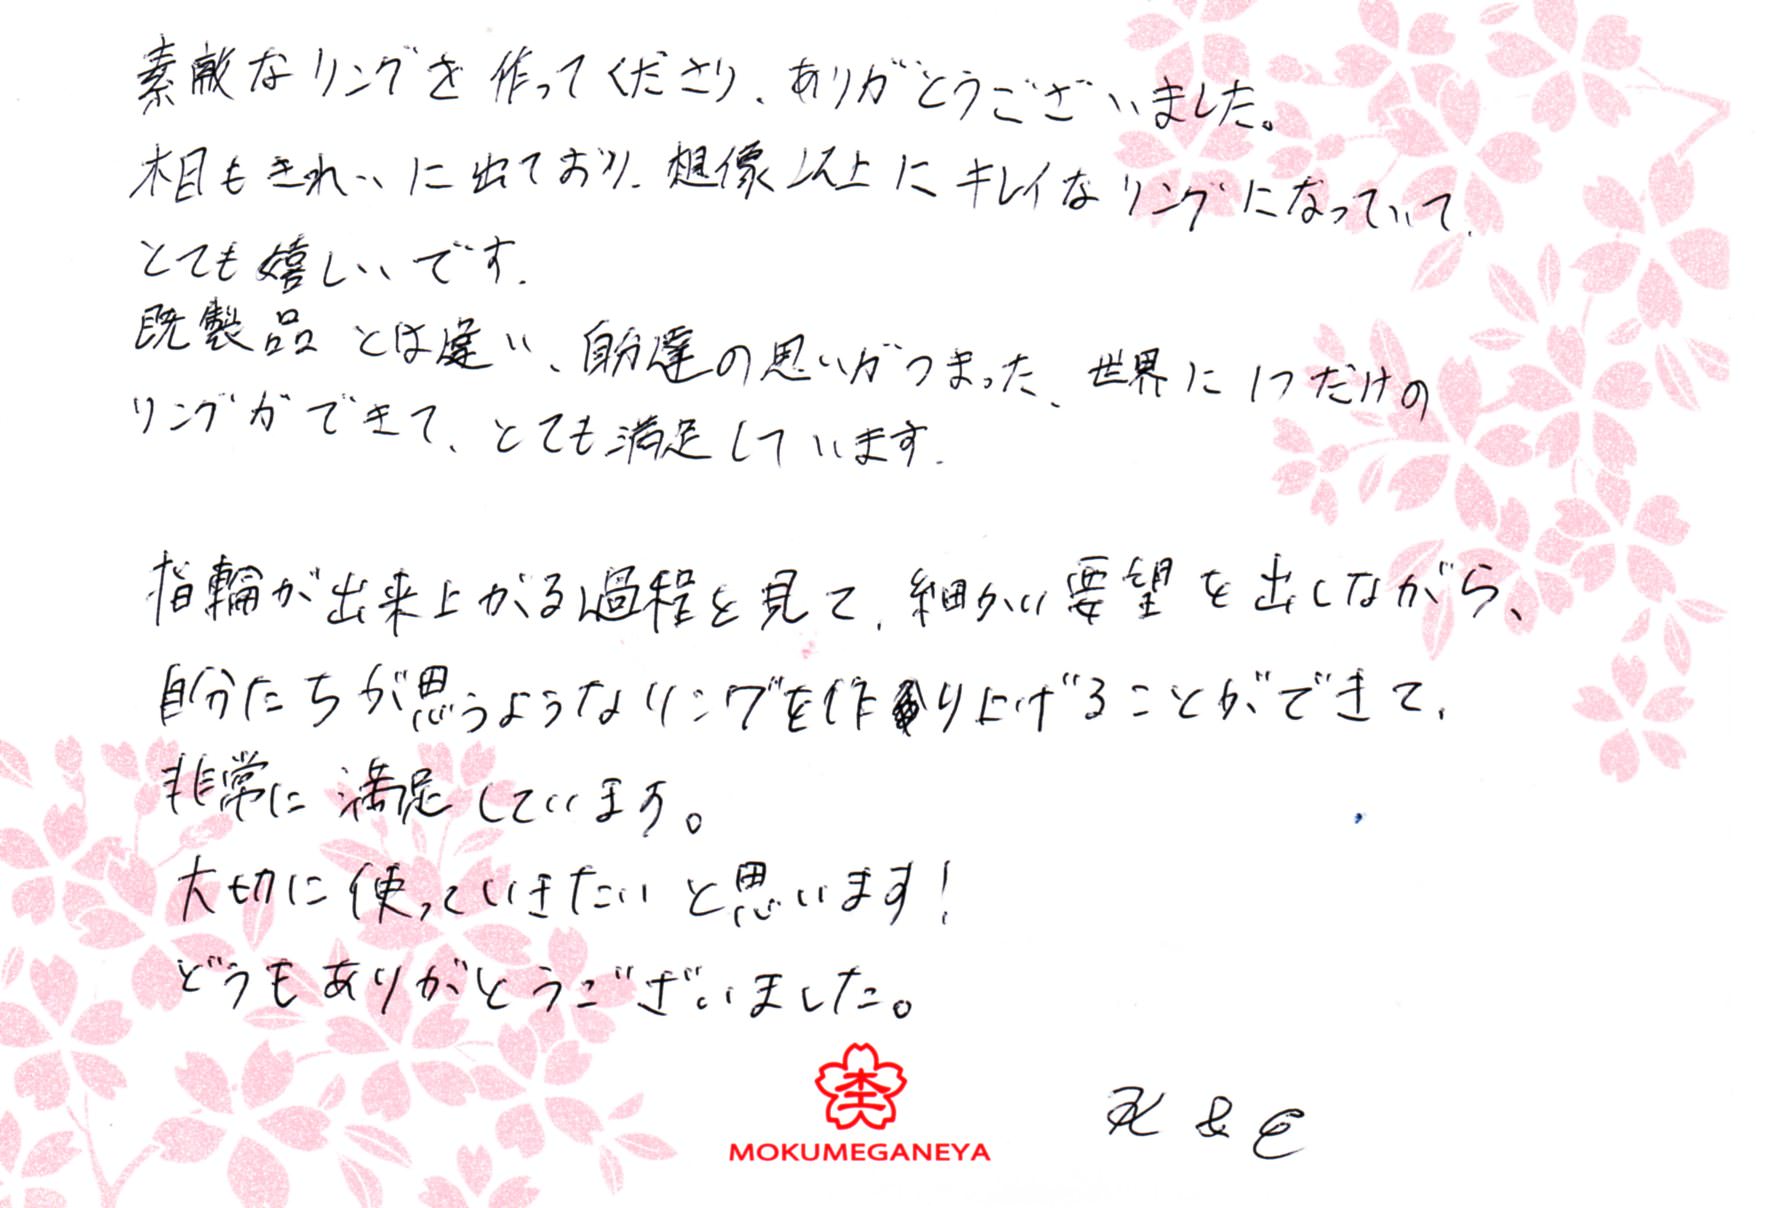 素敵なリングを作ってくださり、ありがとうございました。
木目もきれいに出ており、想像以上にキレイなリングになっていて、
とても嬉しいです。
既製品とは違い、自分達の思いがつまった、世界に1つだけの
リングができて、とても満足しています。
指輪が出来上がる過程を見て、細かい要望を出しながら、
自分たちが思うようなリングを作り上げることができて、
非常に満足しています。
大切に使っていきたいと思います!
どうもありがとうございました。
杢
MOKUMEGANEYA
K & E